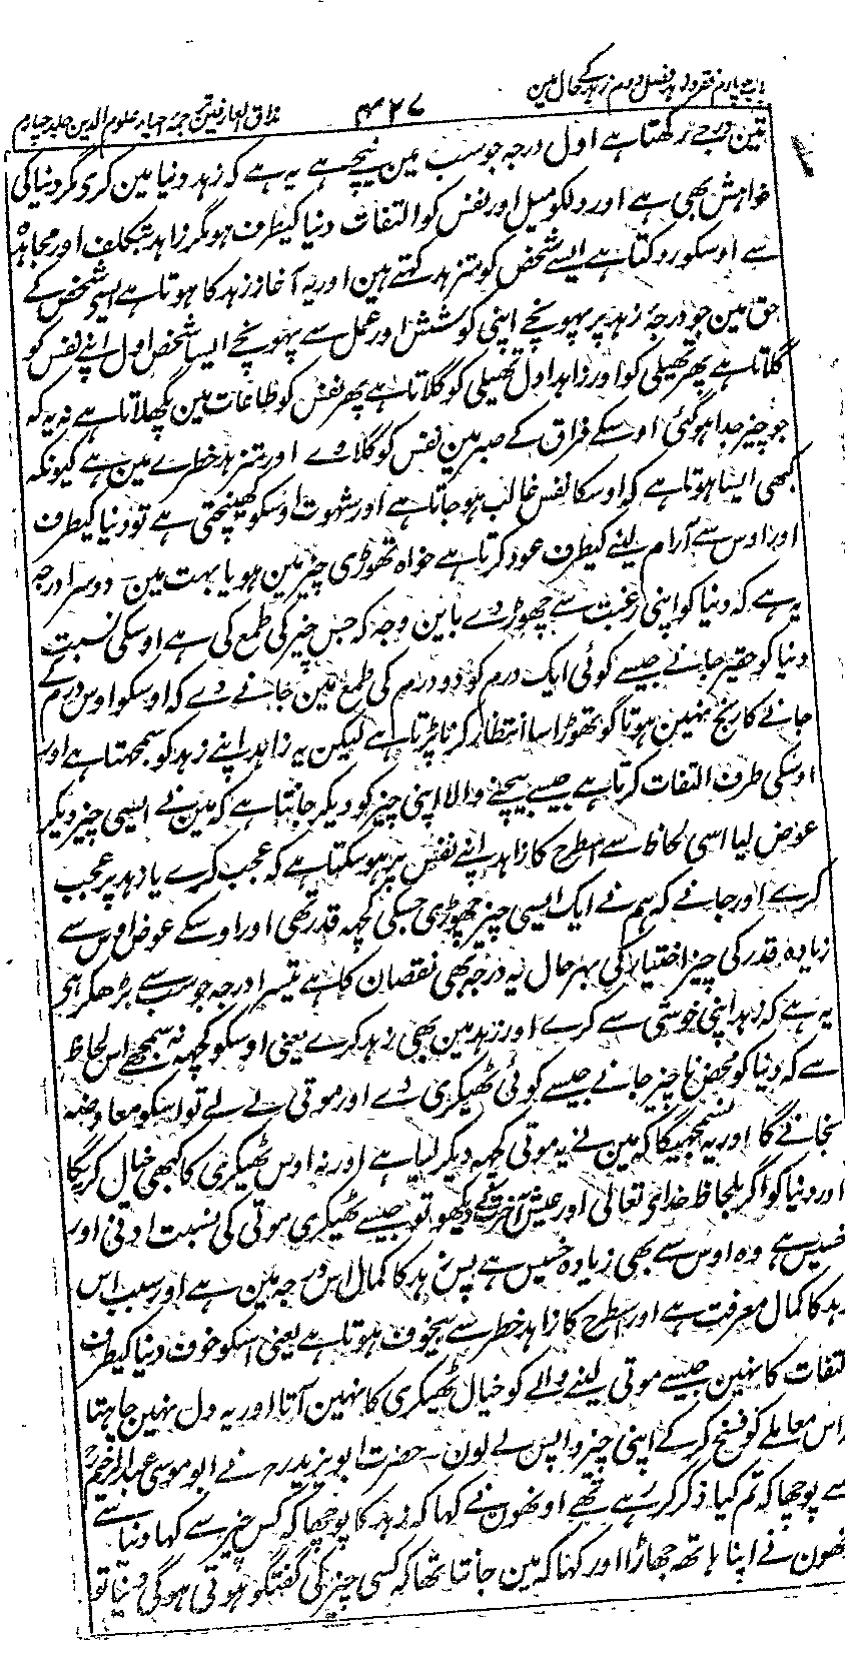 باب چہارم فقر و زہد فصل دوم زہد کے حال مین
۴۲۷
مذاق العارفین ترجمۂ احیاء علوم الدین جلد چہارم
تین درجے رکھتا ہے اول درجہ جو سب مین نیچے ہے یہ ہے کہ زہد دنیا مین کری مگر دنیا کی
خواہش بھی ہے اور دلکو میل اور نفس کو التفات دنیا کیطرف ہو مگر زاہد بتکلف اور مجاہدہ
سے اوسکو روکتا ہے ایسے شخص کو متزہد کہتے ہین اور یہ آغاز زہد کا ہوتا ہے ایسی شخص کے
حق مین جو درجۂ زہد پر پہونچے اپنی کوشش اور عمل سے پہونچے ایسا شخص اول اپنے نفس کو
گلاتا ہے پھر تھیلی کو اور زاہد اول تھیلی کو گلاتا ہے پھر نفس کو طاعات مین پگھلاتا ہے نہ یہ کہ
جو چیز جدا ہو گئی اوسکے فراق کے صبر مین نفس کو گلاوے اور متزہد خطرے مین ہے کیونکہ
کبھی ایسا ہوتا ہے کہ اوسکا نفس غالب ہو جاتا ہے اور شہوت اوسکو کھینچتی ہے تو دنیا کیطرف
اور اوس سے آرام لینے کیطرف عود کرتا ہے خواہ تھوڑی چیز مین ہو یا بہت مین۔ دوسرا درجہ
یہ ہے کہ دنیا کو اپنی رغبت سے چھوڑ دے باین وجہ کہ جس چیز کی طمع کی ہے اوسکی نسبت
دنیا کو حقیر جانے جیسے کوئی ایک درم کو دو درم کی طمع مین جانے دے کہ اوسکو اوس درم کے
جانے کا رنج نہین ہوتا گو تھوڑا سا انتظار کرنا پڑتا ہے لیکن یہ زاہد اپنے زہد کو سمجھتا ہے اور
اوسکی طرف التفات کرتا ہے جیسے بیچنے والا اپنی چیز کو دیکر جانتا ہے کہ مین نے ایسی چیز دیکر
عوض لیا اسی لحاظ سے اسطرح کا زاہد اپنے نفس پر ہو سکتا ہے کہ عجب کرے یا زہد پر عجب
کرے اور جانے کہ ہم نے ایک ایسی چیز چھوڑی جسکی کچھ قدر تھی اور اوسکے عوض اوس سے
زیادہ قدر کی چیز اختیار کی بہر حال یہ درجہ بھی نقصان کا ہے تیسرا درجہ جو سب سے بڑھکر ہی
یہ ہے کہ زہد اپنی خوشی سے کرے اور زہد مین بھی زہد کرے یعنی اوسکو کچھ نہ سمجھے اس لحاظ
سے کہ دنیا کو محض ناچیز جانے جیسے کوئی ٹھیکری دے اور موتی لے لے تو اسکو معاوضہ
نجانے گا اور یہ نسمجھیگا کہ مین نے یہ موتی کچھ دیکر لیا ہے اور نہ اوس ٹھیکری کا کبھی خیال کریگا
اور دنیا کو اگر بلحاظ خدای تعالی اور عیش آخرت کے دیکھو تو جیسے ٹھیکری موتی کی نسبت ادنی اور
خسیس ہے وہ اوس سے بھی زیادہ خسیس ہے پس زہد کا کمال اس درجہ مین ہے اور سبب اس
زہد کا کمال معرفت ہے اور اسطرح کا زاہد خطر سے بیخوف ہوتا ہے یعنی اسکو خوف دنیا کیطرف
لتفات کا نہین جیسے موتی لینے والے کو خیال ٹھیکری کا نہین آتا اور یہ دل نہین چاہتا
اس معاملے کو فسخ کر کے اپنی چیز واپس لے لون۔ حضرت ابو یزید رح نے ابو موسی عبدالرحیم
سے پوچھا کہ تم کیا ذکر کر رہے تھے اونھون نے کہا کہ زہد کا پوچھا کہ کس چیز سے کہا دنیا سے
نھون نے اپنا ہاتھ جھاڑا اور کہا کہ مین جانتا تھا کہ کسی چیز کی گفتگو ہوتی ہوگی دنیا تو